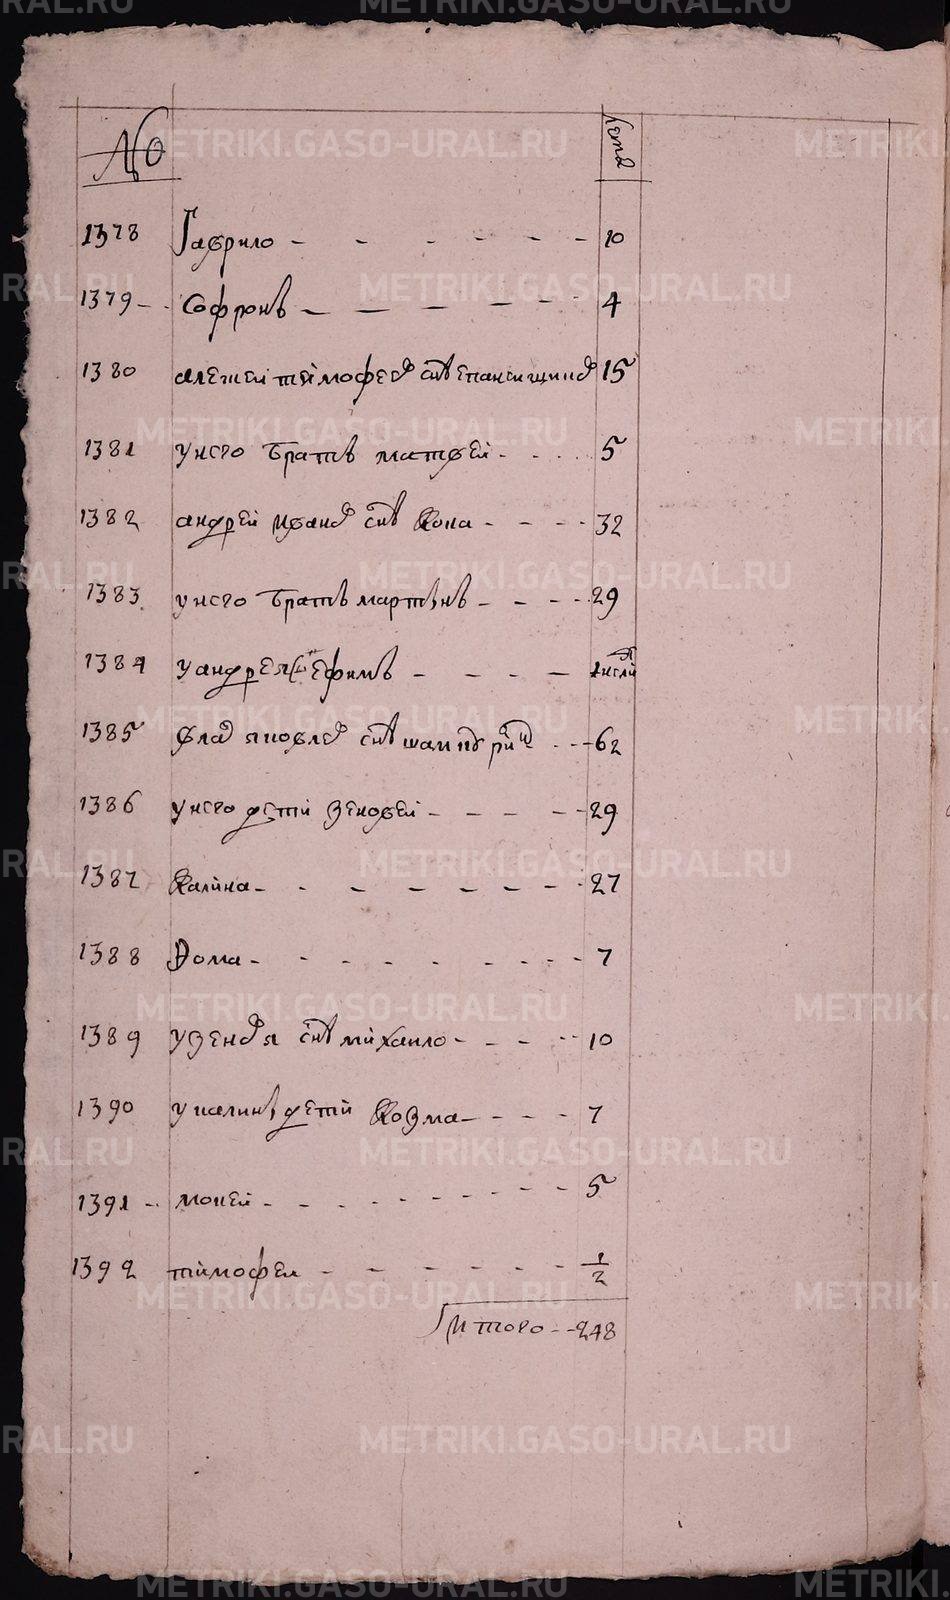 № лета
1378 Гаврило - - - - - - 10
1379 - - Софронъ - - - - - - 4
1380 алежеи тимофеев снъ епанчинцов 15
1381 у него братъ матвеи - - - - 5
1382 андреи иванов снъ Кока - - - - 32
1383 у него братъ мартынъ - - - - 29
1384 у андрея снъ ефимъ - - - - 2 нсдли
1385 влас яковлев снъ - - - 62
1386 у него дети Зеновеи - - - - - 29
1387 Калина - - - - - - - - 27
1388 Фома - - - - - - - - - 7
1389 у Зеновя снъ михаило - - - - - 10
1390 у калины дети Козма - - - - 7
1391 - - мокеи - - - - - - - - - 5
1392 тимофеи - - - - - - 1/2
Итого - - 248
METRIKI.GASO-URAL.RU